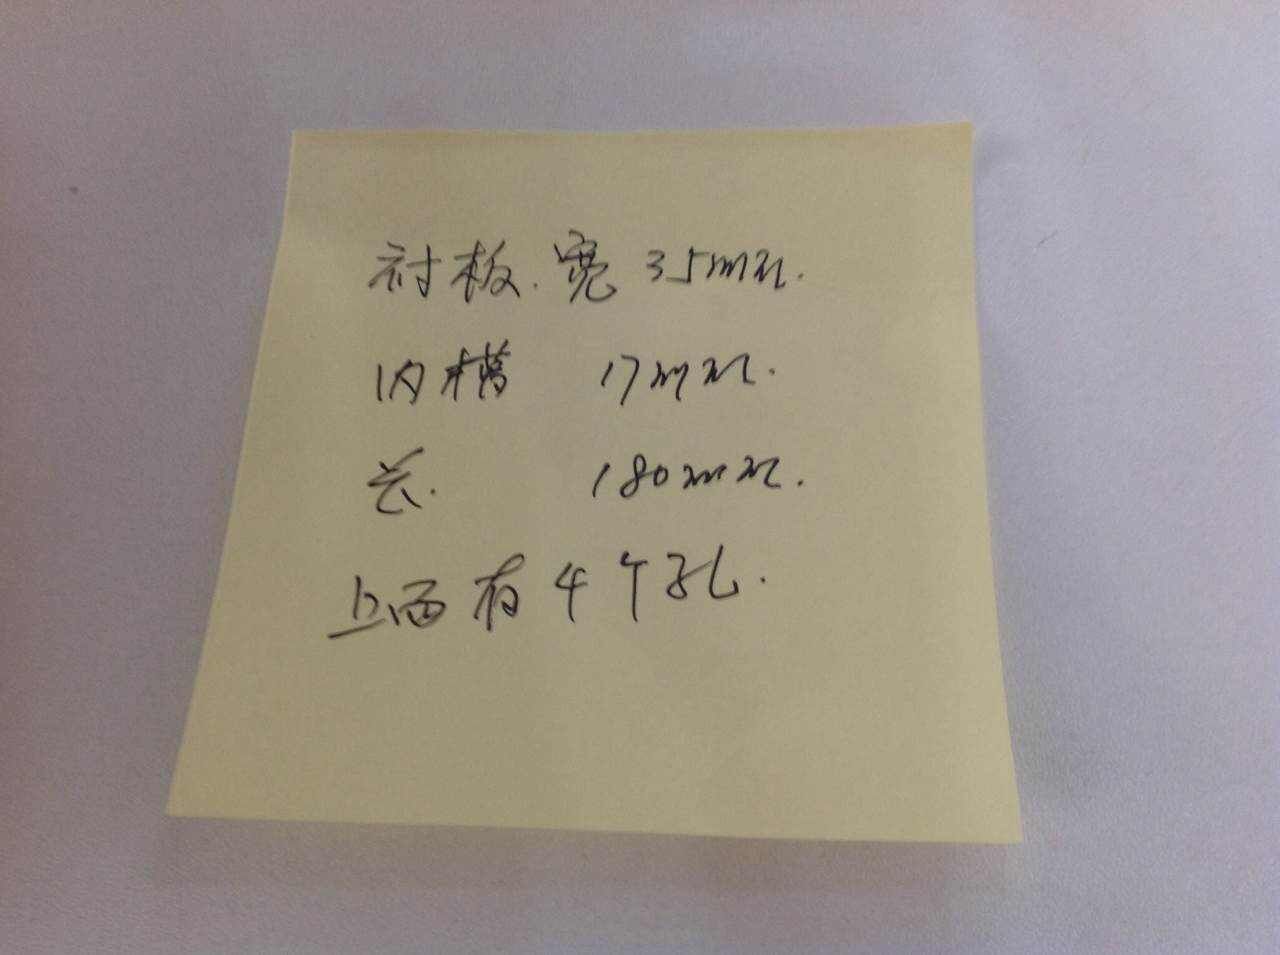 衬板.宽 35mm.
内槽 17mm.
长. 180mm.
上面有4个孔.